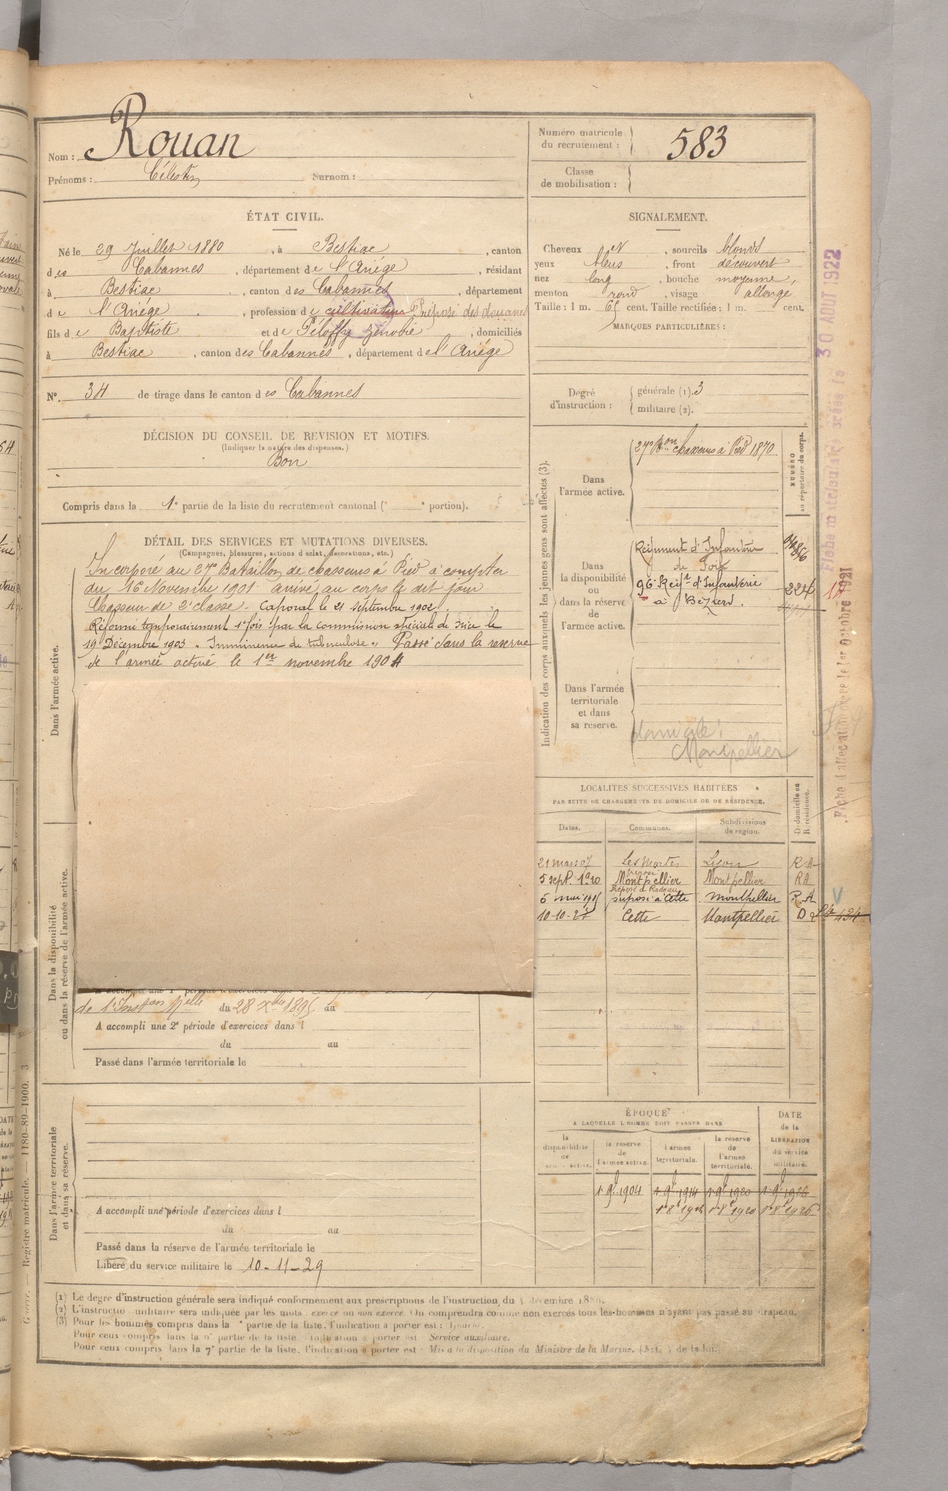 Nom : Rouan
Prénoms : Célestin Surnom :
Numéro matricule du recrutement : 583
Classe de mobilisation :
ÉTAT CIVIL.
Né le 29 Juillet 1880, à Bestiac, canton
des Cabannes, département de l'Ariége, résidant
à Bestiac, canton des Cabannes, département
de l'Ariége, profession de cultivateur Préposé des douanes
fils de Baptiste et de Péloffy Zénobie, domiciliés
à Bestiac, canton des Cabannes, département de l'Ariége
N°. 34 de tirage dans le canton des Cabannes
SIGNALEMENT.
Cheveux, sourcils blonds
yeux bleus, front découvert
nez long, bouche moyenne,
menton rond, visage allongé
Taille : 1 m. 65 cent. Taille rectifiée : 1 m. cent.
MARQUES PARTICULIÈRES :
Degré d'instruction : générale (1). 3
militaire (2).
DÉCISION DU CONSEIL DE REVISION ET MOTIFS.
(Indiquer la nature des dispenses.)
Bon
Compris dans la 1e partie de la liste du recrutement cantonal (° portion).
DÉTAIL DES SERVICES ET MUTATIONS DIVERSES.
(Campagnes, blessures, actions d'éclat, décorations, etc.)
Incorporé au 27e Bataillon de chasseurs à Pied à compter
du 16 Novembre 1901 arrivé au corps le dit jour
Chasseur de 2e classe. Caporal le 21 septembre 1902
Réformé temporairement 1e fois par la commission spéciale de Nice le
19 Décembre 1903. Imminence de tuberculose. Passé dans la réserve
de l'armée active le 1er novembre 1904
Dans l'armée active.
Dans la disponibilité ou dans la réserve de l'armée active.
de l' du 28 Xbre 1895 au
A accompli une 2e période d'exercices dans l
du au
Passé dans l'armée territoriale le
Dans l'armée territoriale et dans sa réserve.
A accompli une période d'exercices dans l
du au
Passé dans la réserve de l'armée territoriale le
Libéré du service militaire le 10-11-29
Indication des corps auxquels les jeunes gens sont affectés (3).
NUMÉRO au répertoire du corps.
Dans l'armée active.
27e Bon chasseurs à Pied 1870
Dans la disponibilité ou dans la réserve de l'armée active.
Régiment d'Infanterie
de Foix
96e Régt d'Infanterie
à Béziers.
224
Dans l'armée territoriale et dans sa réserve.
domicile :
Montpellier
LOCALITÉS SUCCESSIVES HABITÉES
PAR SUITE DE CHANGEMENTS DE DOMICILE OU DE RÉSIDENCE.
Dates. Communes. Subdivisions de région. D domicile ou R résidence.
21 mars 07 Lyon R.A
5 sept. 1920 Montpellier Montpellier RA
à Cette Montpellier R.A
Cette Montpellier D
ÉPOQUE
A LAQUELLE L'HOMME DOIT PASSER DANS
la disponibilité de l'armée active. la réserve de l'armée active. l'armée territoriale. la réserve de l'armée territoriale.
DATE de la LIBÉRATION du service militaire.
1 9bre 1904 1 9bre 1914 1 9bre 1920 1 9bre 1926
Fiche matriculaire créée le 30 AOUT 1922
Fiche d'affectation créée le 1er Octobre 1921
Registre matricule. — 1180-89-1900. 3
(1) Le degré d'instruction générale sera indiqué conformément aux prescriptions de l'instruction du 4 décembre 1889.
(2) L'instruction militaire sera indiquée par les mots : exercé ou non exercé. On comprendra comme non exercés tous les hommes n'ayant pas passé au drapeau.
(3) Pour les hommes compris dans la partie de la liste, l'indication à porter est :
Pour ceux compris dans la 6e partie de la liste l'indication à porter est Service auxiliaire.
Pour ceux compris dans la 7e partie de la liste, l'indication à porter est Mis à la disposition du Ministre de la Marine.